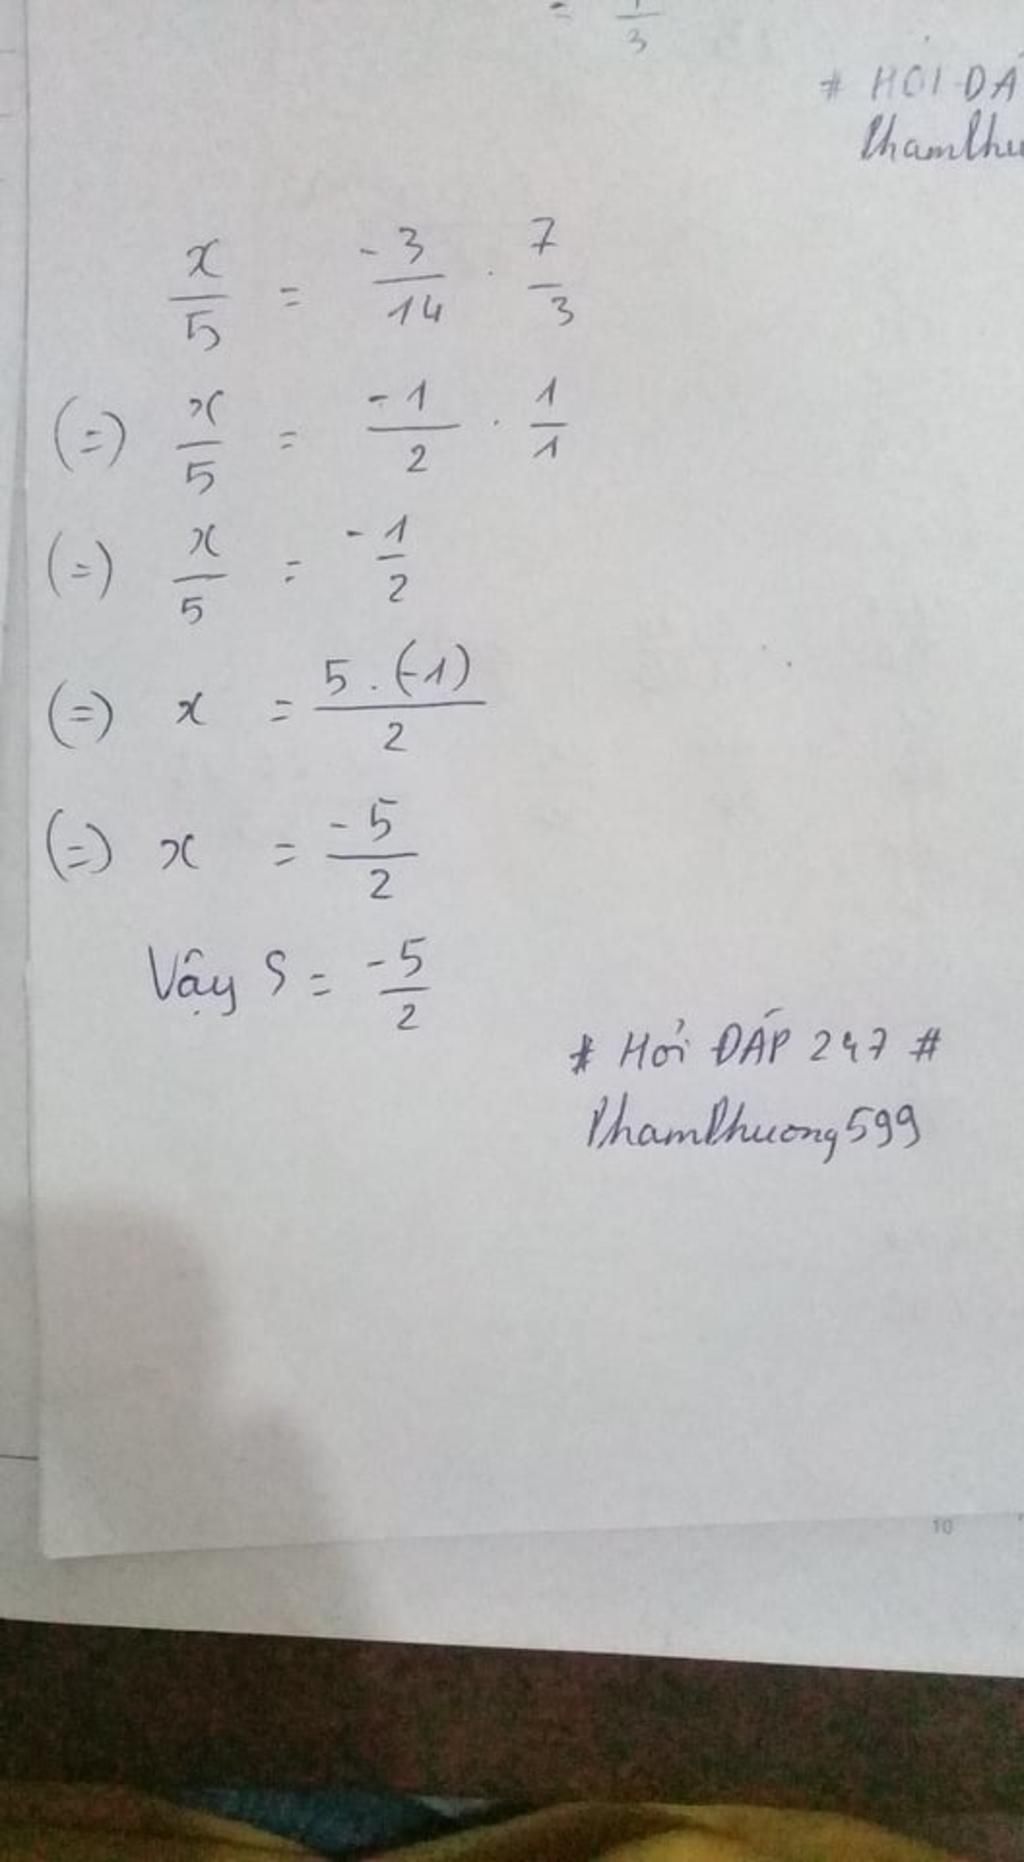 = 1/3
# HỎI ĐÁ
PhamPhu
x/5 = -3/14 . 7/3
(=) x/5 = -1/2 . 1/1
(=) x/5 = -1/2
(=) x = 5.(-1)/2
(=) x = -5/2
Vậy S = -5/2
# Hỏi ĐÁP 247 #
PhamPhuong599
10